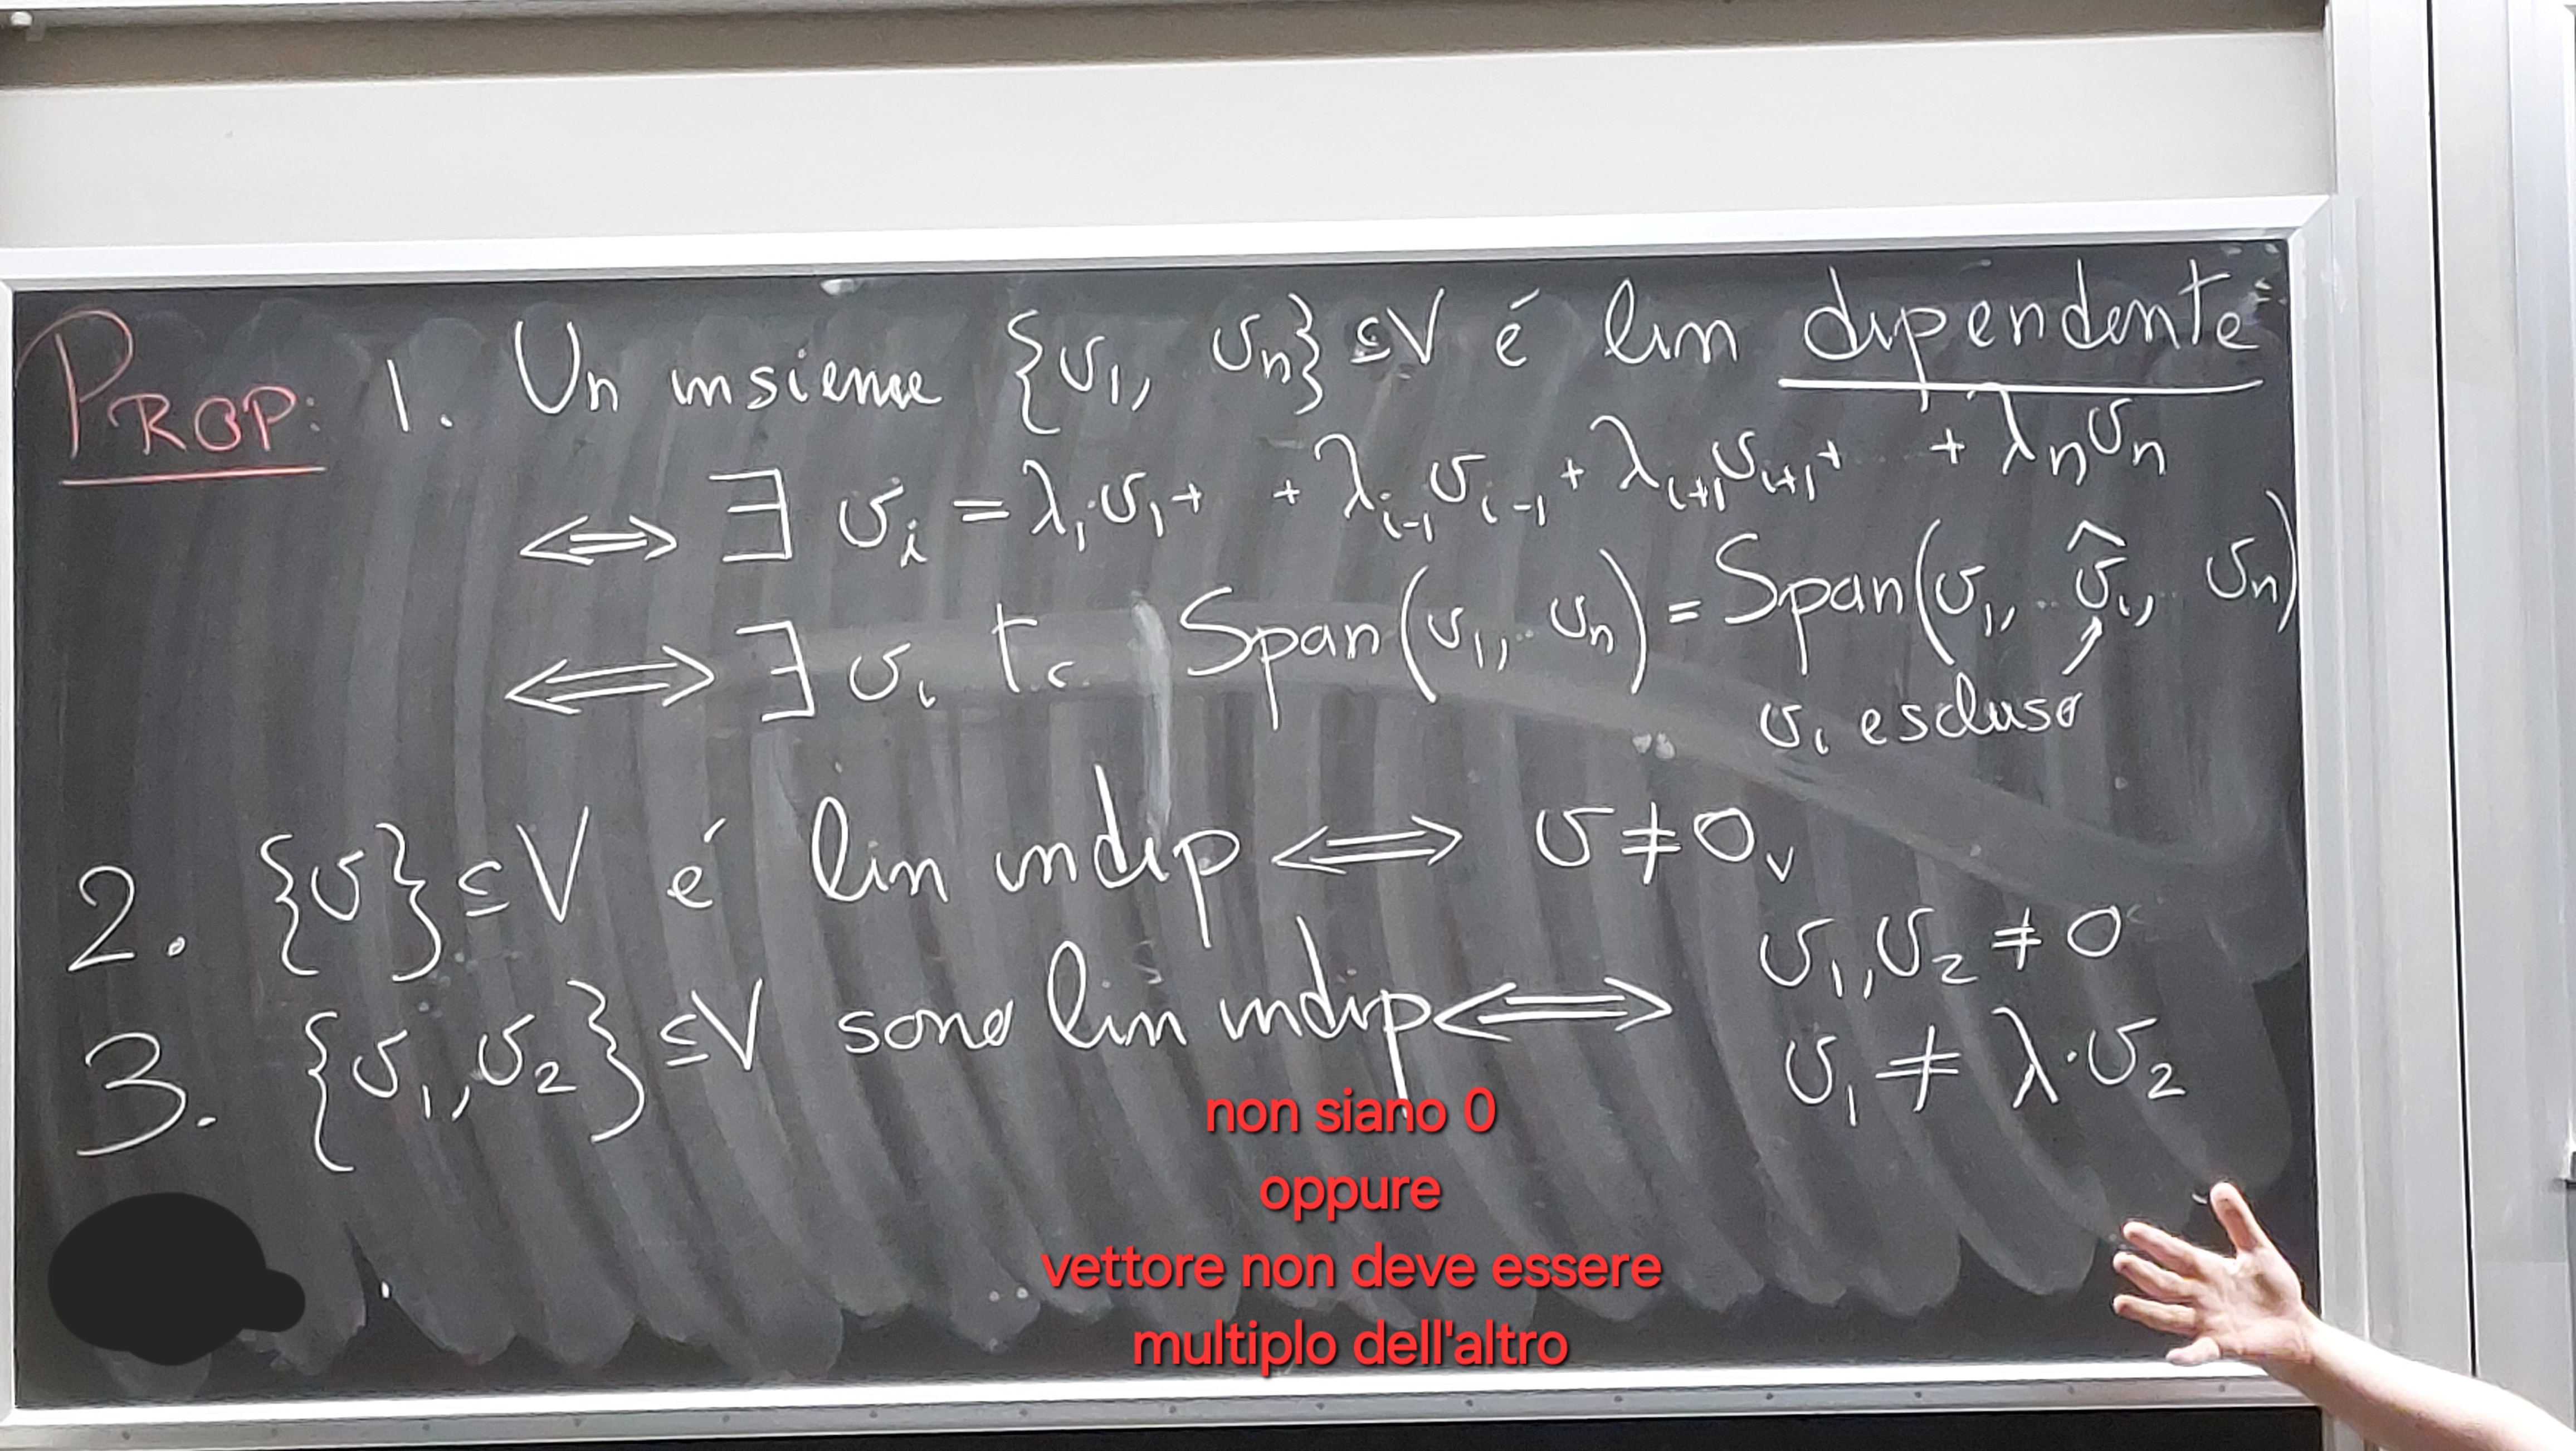 PROP: 1. Un insieme {v₁, vₙ} ⊆ V é lin dipendente
⟺ ∃ vᵢ = λ₁·v₁ + + λᵢ₋₁vᵢ₋₁ + λᵢ₊₁vᵢ₊₁ + ... + λₙvₙ
⟺ ∃ vᵢ t.c. Span(v₁,.. vₙ) = Span(v₁, .. v̂ᵢ, vₙ)
vᵢ escluso
2. {v} ⊆ V é lin indip ⟺ v ≠ 0ᵥ
3. {v₁, v₂} ⊆ V sono lin indip ⟺ v₁, v₂ ≠ 0
v₁ ≠ λ·v₂
non siano 0
oppure
vettore non deve essere
multiplo dell'altro